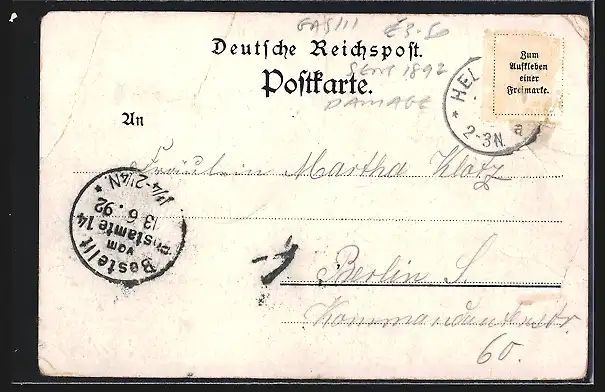 GAS III £3.50
Deutsche Reichspost.
SENT 1892
Postkarte.
DAMAGE
Zum
Aufkleben
einer
Freimarke.
HEL
2-3N. a
An
Fräulein Martha Klotz
Berlin S.
Kommandantenstr.
60.
Bestellt
vom
Postamte 14
13.6.92
1¼-2¼N.